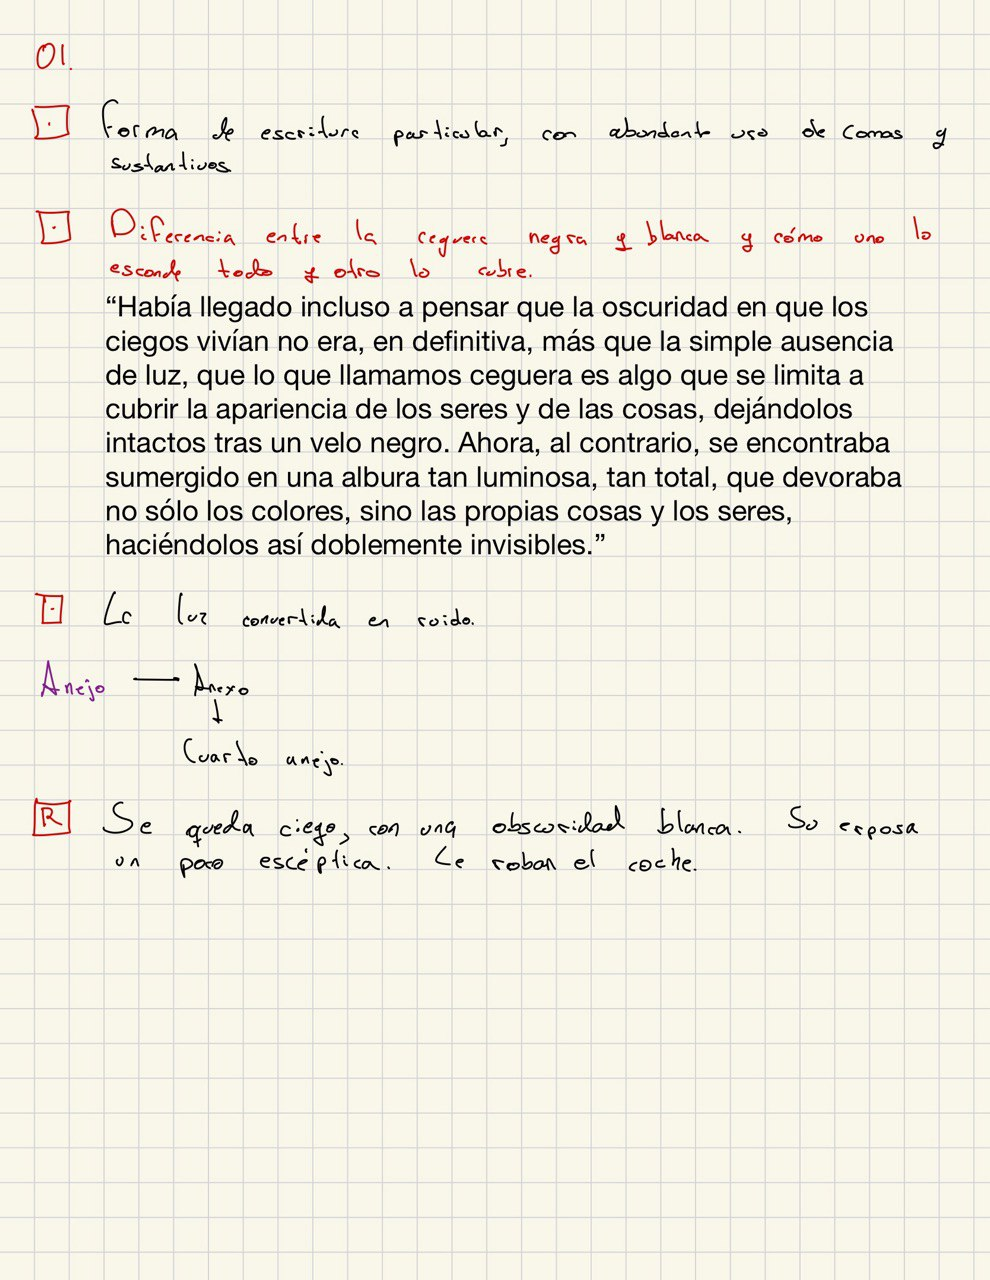 01.
Forma de escritura particular, con abundante uso de comas y
sustantivos
Diferencia entre la ceguera negra y blanca y cómo uno lo
esconde todo y otro lo cubre.
“Había llegado incluso a pensar que la oscuridad en que los
ciegos vivían no era, en definitiva, más que la simple ausencia
de luz, que lo que llamamos ceguera es algo que se limita a
cubrir la apariencia de los seres y de las cosas, dejándolos
intactos tras un velo negro. Ahora, al contrario, se encontraba
sumergido en una albura tan luminosa, tan total, que devoraba
no sólo los colores, sino las propias cosas y los seres,
haciéndolos así doblemente invisibles.”
La luz convertida en ruido.
Anejo — Anexo
↓
Cuarto anejo.
R Se queda ciego, con una obscuridad blanca. Su esposa
un poco escéptica. Le roban el coche.